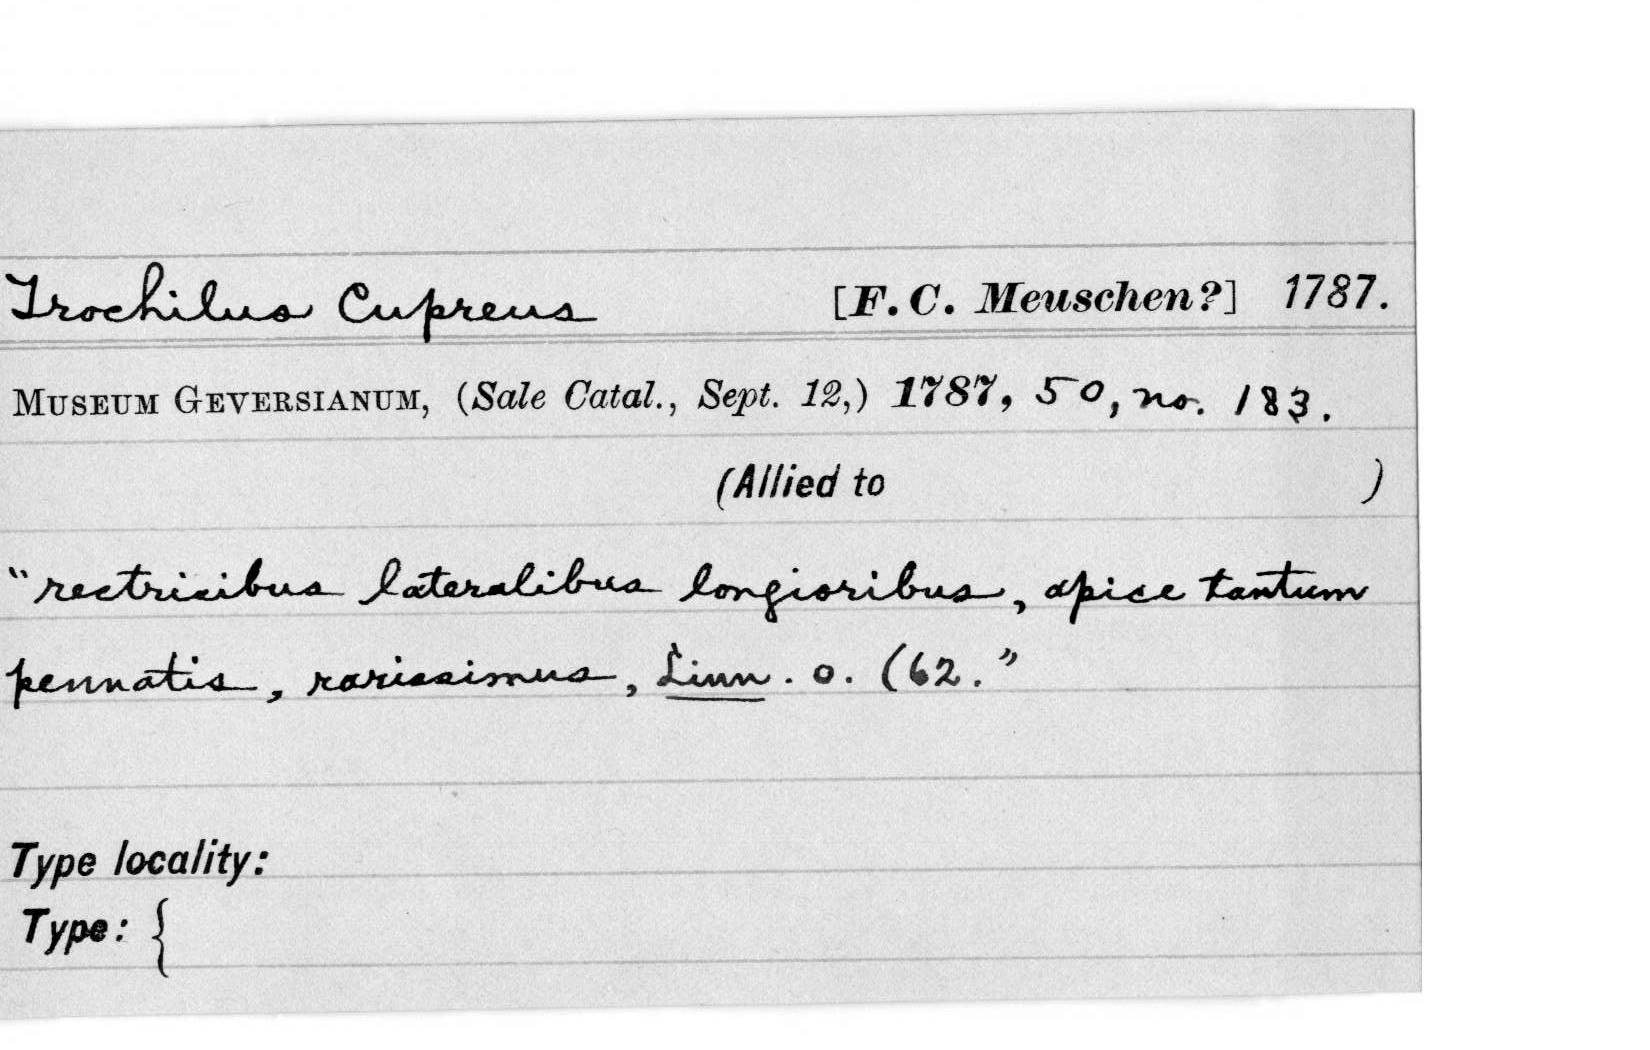 Trochilus Cupreus [F. C. Meuschen?] 1787.
Museum Geversianum, (Sale Catal., Sept. 12,) 1787, 50, no. 183.
(Allied to )
"rectricibus lateralibus longioribus, apice tantum
pennatis, rarissimus, Linn. o. (62."
Type locality:
Type: {